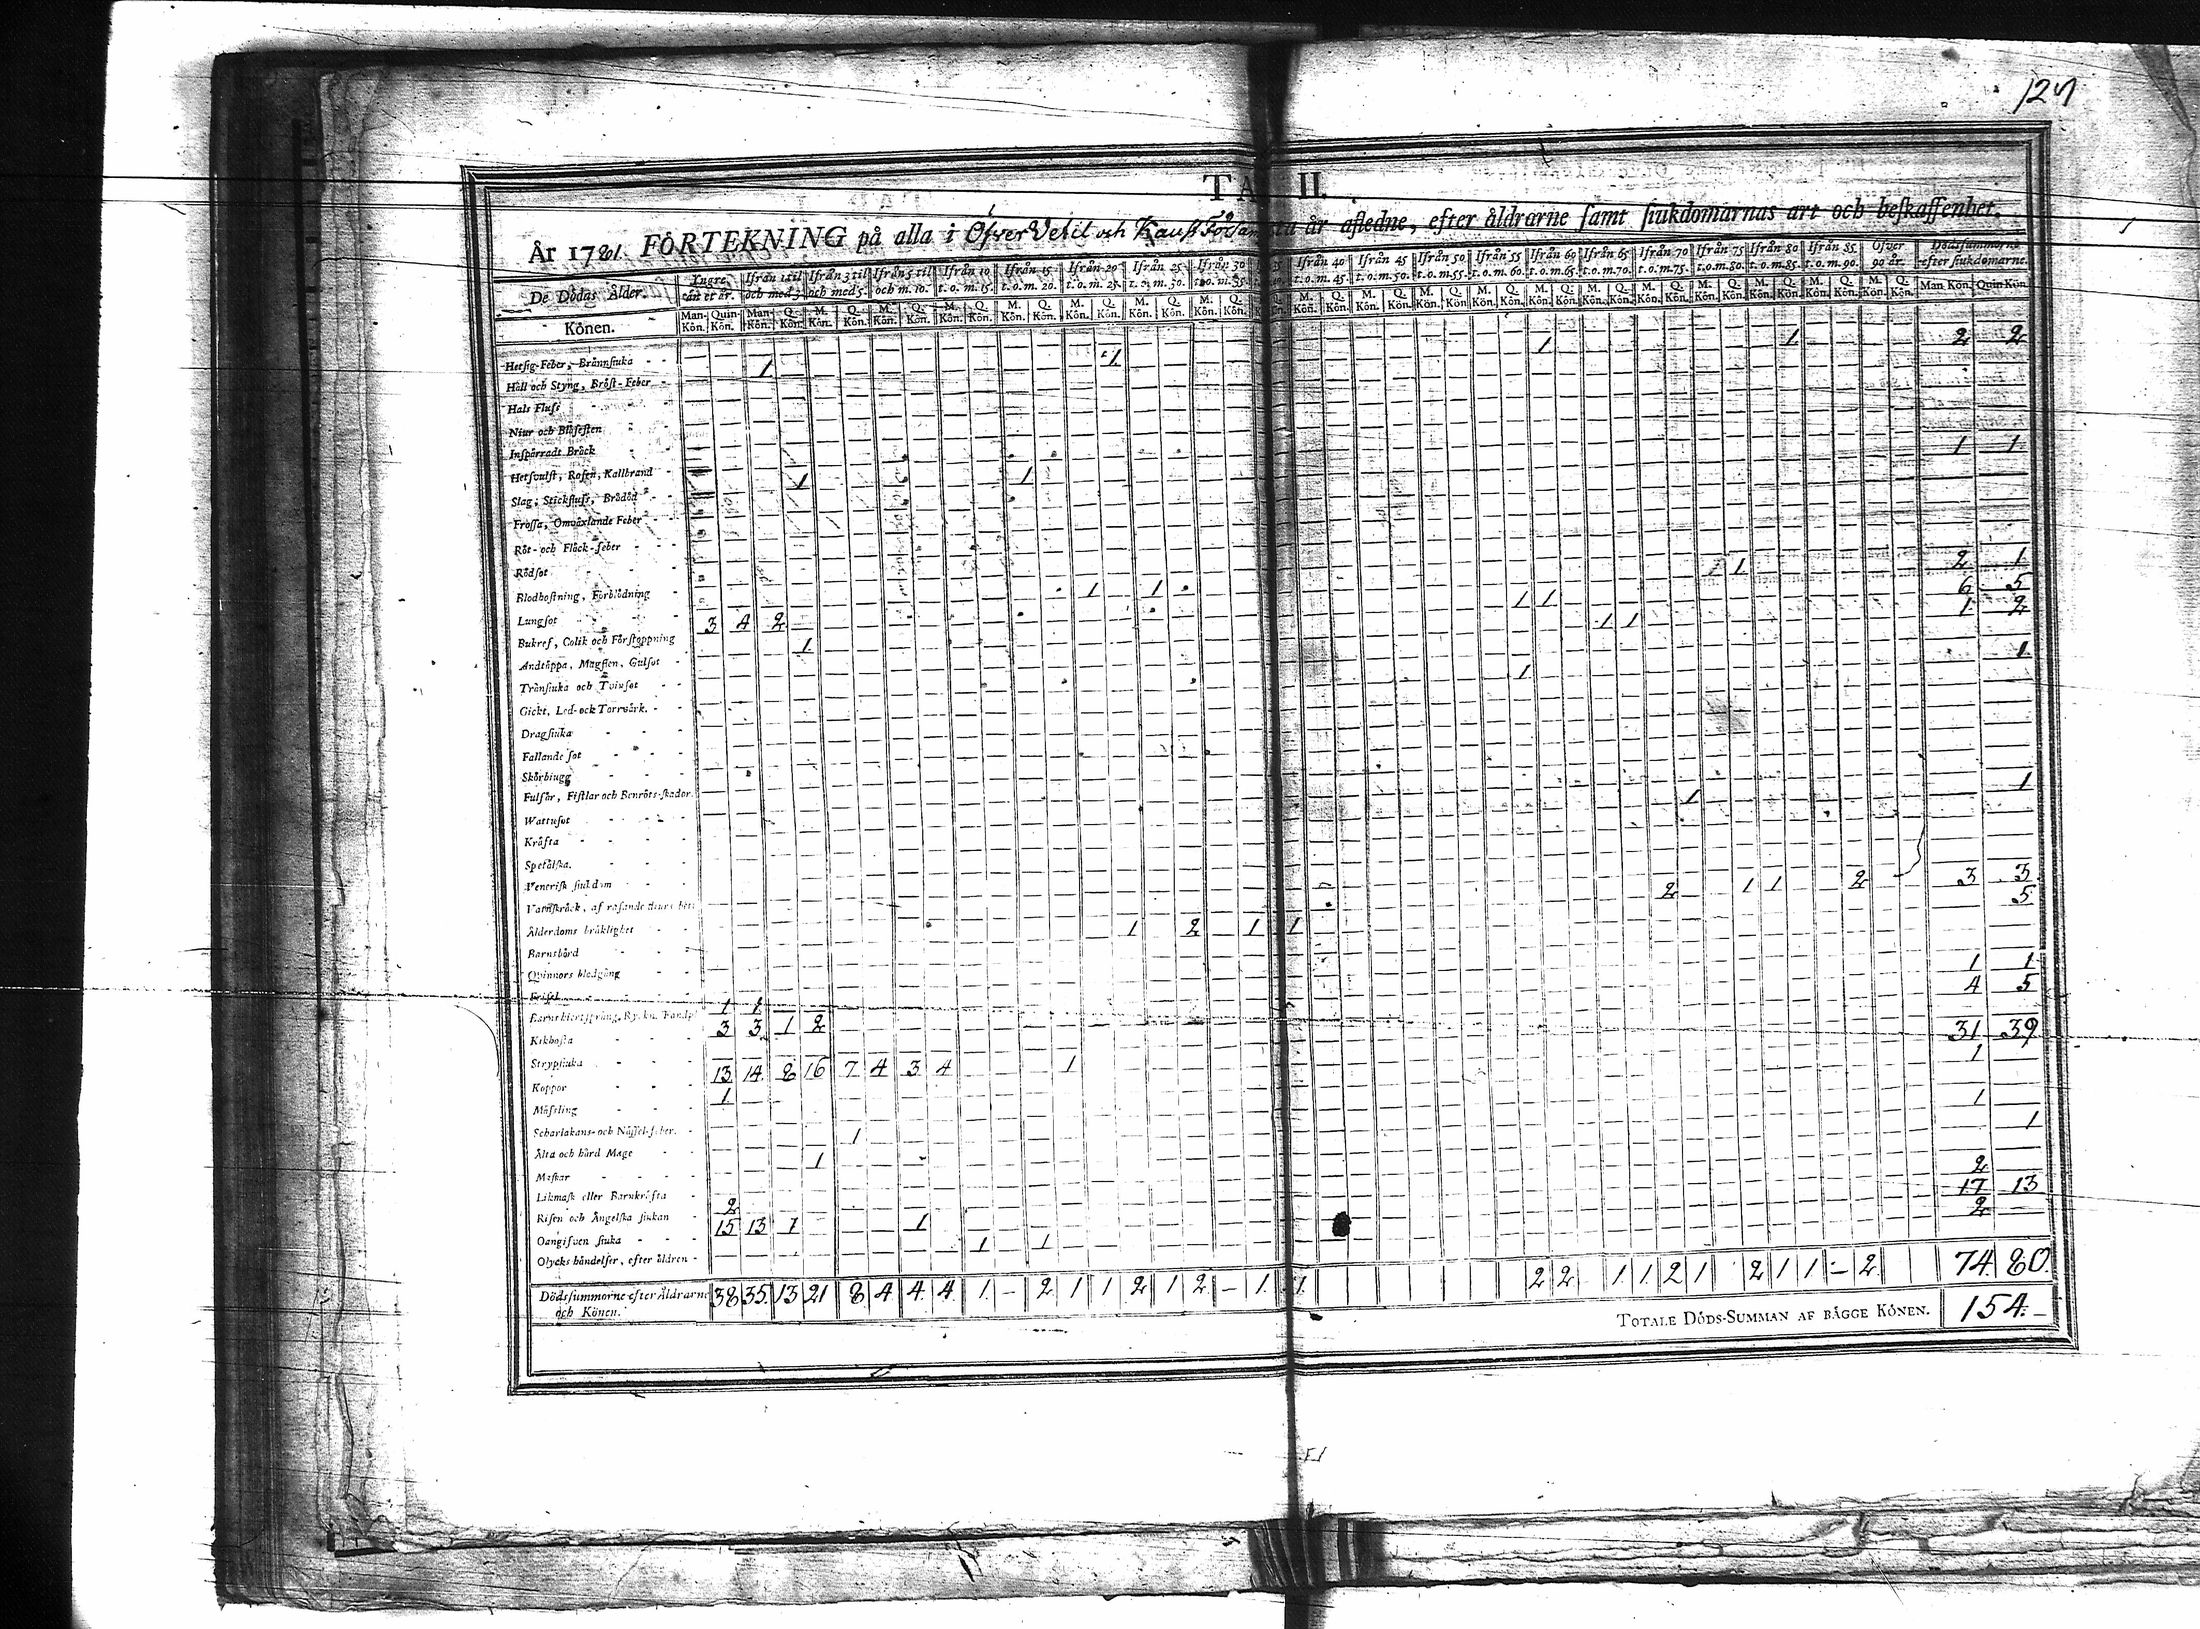 127
TAB. II.
År 1781. FÖRTEKNING på alla i Öfver Vetil och Kaust Församl. detta år afledne, efter åldrarne samt siukdomarnas art och beskaffenhet.
De Dödas Ålder. Yngre än et år. Ifrån 1 til och med 3. Ifrån 3 til och med 5. Ifrån 5 til och m. 10. Ifrån 10 t. o. m. 15. Ifrån 15 t. o. m. 20. Ifrån 20 t. o. m. 25. Ifrån 25 t. o. m. 30. Ifrån 30 t. o. m. 35. Ifrån 40 t. o. m. 45. Ifrån 45 t. o. m. 50. Ifrån 50 t. o. m. 55. Ifrån 55 t. o. m. 60. Ifrån 60 t. o. m. 65. Ifrån 65 t. o. m. 70. Ifrån 70 t. o. m. 75. Ifrån 75 t. o. m. 80. Ifrån 80 t. o. m. 85. Ifrån 85 t. o. m. 90. Öfver 90 år. Dödssummorne efter siukdomarne.
Könen. Man-Kön. Quin-Kön. Man-Kön. Q. Kön. M. Kön. Q. Kön. M. Kön. Q. Kön. Man Kön. Quin Kön.
Hetsig-Feber, Brännsiuka 1 1 1 1 2 2
Håll och Styng, Bröst-Feber
Hals Fluss
Niur och Blåsesten
Inspärradt Bråck
Hetsvulst, Rosen, Kallbrand 1 1 1 1
Slag, Stickfluss, Brådöd
Frossa, Omväxlande Feber
Röt- och Fläck-feber
Rödsot
Blodhostning, Förblödning 1 1 1 1 2 1
Lungsot 3 4 2 1 1 6 5
Bukref, Colik och Förstoppning 1 1 1 1 2
Andtäppa, Magsien, Gulsot
Trånsiuka och Tvinsot 1 1
Gickt, Led- ock Torrvärk.
Dragsiuka
Fallande sot
Skörbiugg
Fulsår, Fistlar och Benröts-skador. 1 1
Wattusot
Kräfta
Spetälska.
Venerisk siukdom
Vatuskräck, af rasande diurs bett
Ålderdoms bräklighet 2 1 1 2 3 3
Barnsbörd 1 2 1 1 5
Quinnors blodgång
Frisel
Barns hiertsprång, Ryckn. 1 1 1 1
Kikhosta 3 3 1 2 4 5
Strypsiuka
Koppor 13 14 8 16 7 4 3 4 1 31 39
Mässling 1 1
Scharlakans- och Nässel-feber. 1 1
Älta och hård Mage 1 1
Maskar
Likmask eller Barnkräfta
Risen och Ängelska siukan 2 2
Oangifven siuka 15 13 1 1 17 13
Olycks händelser, efter åldren 1 1 2
Dödssummorne efter Åldrarne och Könen. 38 35 13 21 8 4 4 4 1 – 2 1 1 2 1 2 – 1 1 2 2 1 1 2 1 2 1 1 – 2 74 80
TOTALE DÖDS-SUMMAN AF BÄGGE KÖNEN. 154.